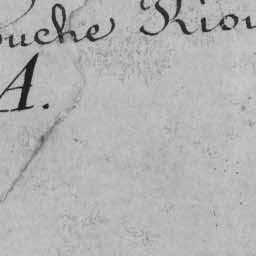 ouche Riou
A.